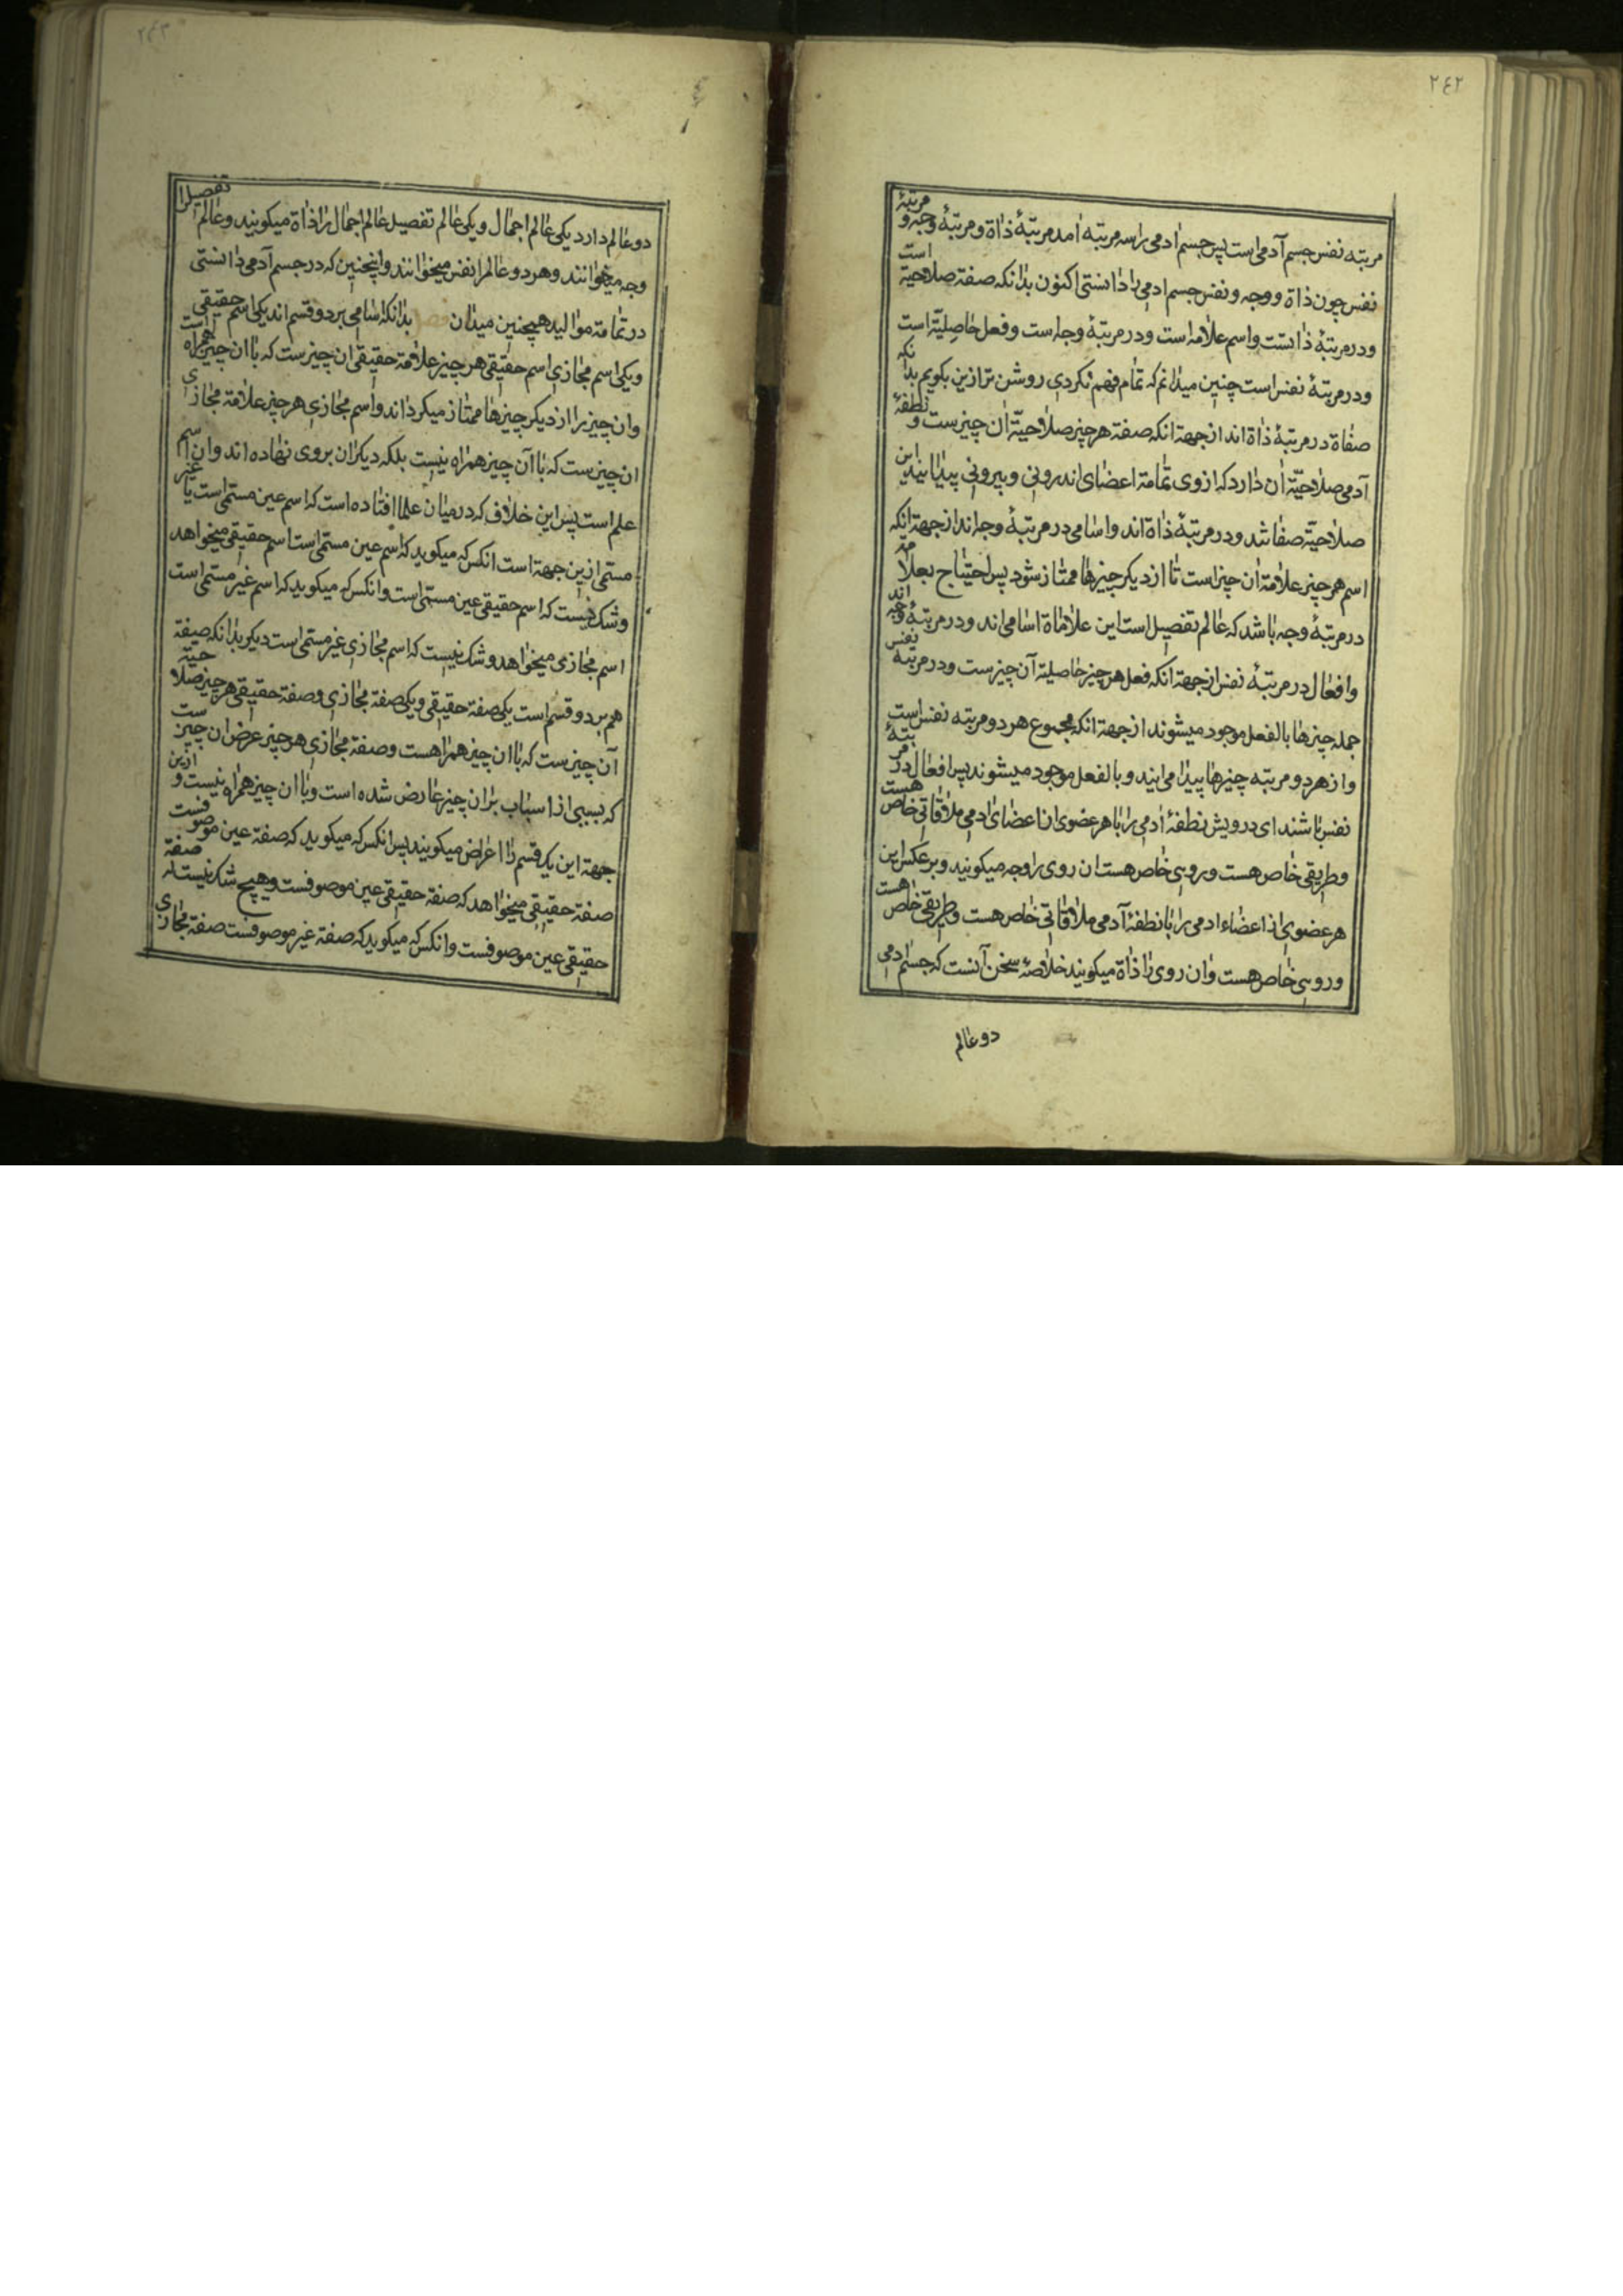 ٢٤٢
مرتبه نفس جسم آدمی است پس جسم ادمی را سه مرتبه امد مرتبهٔ ذاة و مرتبهٔ وجه و مرتبهٔ
نفس چون ذاة و وجه و نفس جسم ادمی را دانستی اکنون بدانکه صفة صلاحیة است
ودر مرتبهٔ ذاتست واسم علامة است ودر مرتبهٔ وجه است و فعل خاصیّة است
ودر مرتبهٔ نفس است چنین میدانم که تمام فهم نکردی روشن تر ازین بکویم بدانکه
صفاة در مرتبهٔ ذاة اند از جهة انکه صفة هر چیز صلاحیّة ان چیز ست و نطفهٔ
آدمی صلاحیّة ان دارد که از وی تمامة اعضای اندرونی و بیرونی پیدا ایند این
صلاحیّة صفا شد ودر مرتبهٔ ذاة اند واسامی در مرتبهٔ وجه اند از جهة انکه
اسم هر چیز علامة ان چیز است تا از دیکر چیزها ممتاز شود پس احتیاج بعلامة
در مرتبهٔ وجه باشد که عالم تفصیل است این علاماة اسامی اند ودر مرتبهٔ وجه اند
وافعال در مرتبهٔ نفس از جهة انکه فعل هر چیز خاصیة آن چیز ست ودر مرتبه نفس
جمله چیزها بالفعل موجود میشوند از جهة انکه مجموع هر دو مرتبه نفس است
واز هر دو مرتبه چیزها پیدا می ایند و بالفعل موجود میشوند پس افعال در مرتبهٔ
نفس باشند ای درویش نطفهٔ ادمی را با هر عضوی از اعضای ادمی ملاقاتی خاص هست
وطریقی خاص هست و رویی خاص هست ان روی را وجه میکویند وبر عکس این
هر عضوی از اعضاء ادمی را با نطفهٔ آدمی ملاقاتی خاص هست و طریقی خاص هست
ورویی خاص هست وان روی را ذاة میکویند خلاصهٔ سخن آنست که جسم ادمی
دو عالم
٢٤٣
دو عالم دارد یکی عالم اجمال و یکی عالم تفصیل عالم اجمال را ذاة میکویند و عالم تفصیل را
وجه میخوانند و هر دو عالم را نفس میخوانند واینچنین که در جسم آدمی دانستی
در تمامة موالید همچنین میدان فصل بدانکه اسامی بر دو قسم اند یکی اسم حقیقی
ویکی اسم مجازی اسم حقیقی هر چیز علامة حقیقی ان چیز ست که با ان چیز همراه است
وان چیز را از دیکر چیزها ممتاز میکرداند واسم مجازی هر چیز علامة مجازی
ان چیز ست که با آن چیز همراه نیست بلکه دیکران بروی نهاده اند وان اسم
علم است پس این خلاف که در میان علما افتاده است که اسم عین مسمّی است یا غیر
مسمّی ازین جهة است انکس که میکوید که اسم عین مسمّی است اسم حقیقی میخواهد
وشک نیست که اسم حقیقی عین مسمّی است وانکس که میکوید که اسم غیر مسمّی است
اسم مجازی میخواهد و شک نیست که اسم مجازی غیر مسمّی است دیکر بدانکه صفة
هم بر دو قسم است یکی صفة حقیقی و یکی صفة مجازی وصفة حقیقی هر چیز صلاحیة
آن چیز ست که با ان چیز همراهست وصفة مجازی هر چیز عرض ان چیز ست
که بسببی از اسباب بران چیز عارض شده است وبا ان چیز همراه نیست و ازین
جهة این یک قسم را اعراض میکویند پس انکس که میکوید که صفة عین موصوفست
صفة حقیقی میخواهد که صفة حقیقی عین موصوفست وهیچ شک نیست که صفة
حقیقی عین موصوفست وانکس که میکوید که صفة غیر موصوفست صفة مجازی